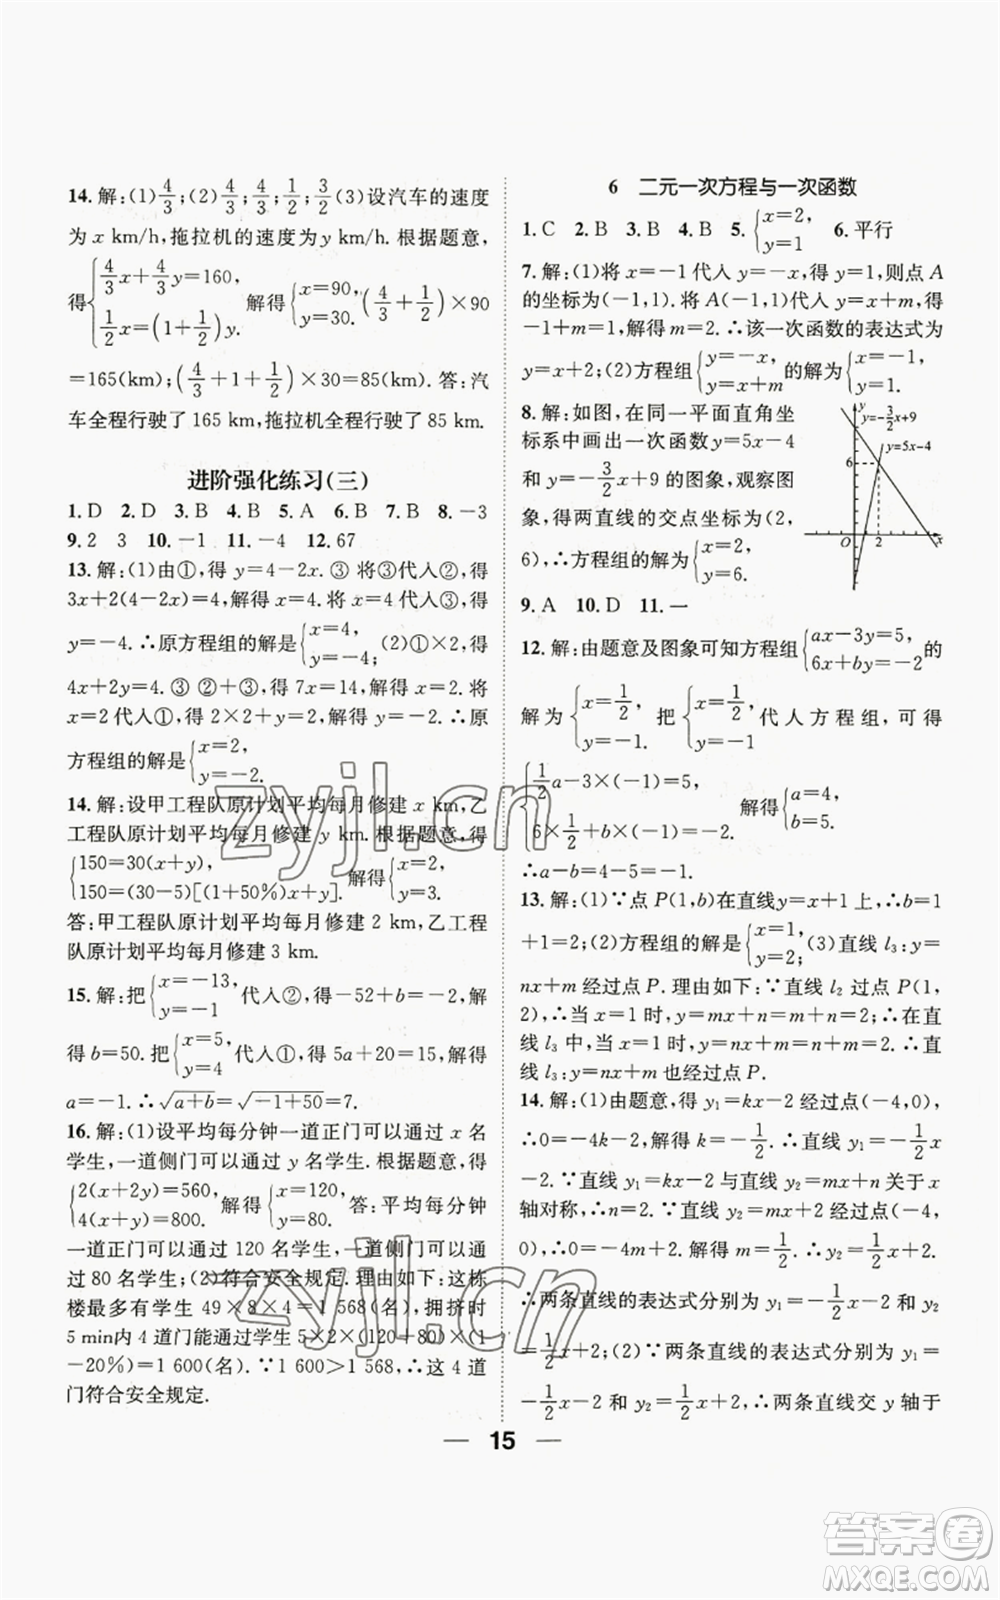 14. 解:(1)4/3;(2)4/3;4/3;1/2;3/2(3)设汽车的速度
为 x km/h,拖拉机的速度为 y km/h. 根据题意,
得{4/3x+4/3y=160, 1/2x=(1+1/2)y. 解得{x=90, y=30. (4/3+1/2)×90
=165(km);(4/3+1+1/2)×30=85(km). 答:汽
车全程行驶了 165 km,拖拉机全程行驶了 85 km.
进阶强化练习(三)
1. D 2. D 3. B 4. B 5. A 6. B 7. B 8. −3
9. 2 3 10. −1 11. −4 12. 67
13. 解:(1)由①,得 y=4−2x. ③ 将③代入②,得
3x+2(4−2x)=4,解得 x=4. 将 x=4 代入③,得
y=−4. ∴原方程组的解是{x=4, y=−4; (2)①×2,得
4x+2y=4. ③ ②+③,得 7x=14,解得 x=2. 将
x=2 代入①,得 2×2+y=2,解得 y=−2. ∴原
方程组的解是{x=2, y=−2.
14. 解:设甲工程队原计划平均每月修建 x km,乙
工程队原计划平均每月修建 y km. 根据题意,得
{150=30(x+y), 150=(30−5)[(1+50%)x+y]. 解得{x=2, y=3.
答:甲工程队原计划平均每月修建 2 km,乙工程
队原计划平均每月修建 3 km.
15. 解:把{x=−13, y=−1 代入②,得−52+b=−2,解
得 b=50. 把{x=5, y=4 代入①,得 5a+20=15,解得
a=−1. ∴√(a+b)=√(−1+50)=7.
16. 解:(1)设平均每分钟一道正门可以通过 x 名
学生,一道侧门可以通过 y 名学生. 根据题意,得
{2(x+2y)=560, 4(x+y)=800. 解得{x=120, y=80. 答:平均每分钟
一道正门可以通过 120 名学生,一道侧门可以通
过 80 名学生;(2)符合安全规定. 理由如下:这栋
楼最多有学生 49×8×4=1 568(名),拥挤时
5 min内 4 道门能通过学生 5×2×(120+80)×(1
−20%)=1 600(名). ∵1 600>1 568,∴这 4 道
门符合安全规定.
6 二元一次方程与一次函数
1. C 2. B 3. B 4. B 5. {x=2, y=1 6. 平行
7. 解:(1)将 x=−1 代入 y=−x,得 y=1,则点 A
的坐标为(−1,1). 将 A(−1,1)代入 y=x+m,得
−1+m=1,解得 m=2. ∴该一次函数的表达式为
y=x+2;(2)方程组{y=−x, y=x+m 的解为{x=−1, y=1.
8. 解:如图,在同一平面直角坐
标系中画出一次函数 y=5x−4
和 y=−3/2x+9 的图象,观察图
象,得两直线的交点坐标为(2,
6),∴方程组的解为{x=2, y=6.
y
y=−3/2x+9
y=5x−4
6
O 2 x
9. A 10. D 11. 一
12. 解:由题意及图象可知方程组{ax−3y=5, 6x+by=−2 的
解为{x=1/2, y=−1. 把{x=1/2, y=−1. 代入方程组,可得
{1/2a−3×(−1)=5, 6×1/2+b×(−1)=−2. 解得{a=4, b=5.
∴a−b=4−5=−1.
13. 解:(1)∵点 P(1,b)在直线 y=x+1 上,∴b=
1+1=2;(2)方程组的解是{x=1, y=2; (3)直线 l₃:y=
nx+m 经过点 P. 理由如下:∵直线 l₂ 过点 P(1,
2),∴当 x=1 时,y=mx+n=m+n=2;∴在直
线 l₃ 中,当 x=1 时,y=nx+m=n+m=2,∴直
线 l₃:y=nx+m 也经过点 P.
14. 解:(1)由题意,得 y₁=kx−2 经过点(−4,0),
∴0=−4k−2,解得 k=−1/2. ∴直线 y₁=−1/2x
−2. ∵直线 y₁=kx−2 与直线 y₂=mx+n 关于 x
轴对称,∴n=2. ∵直线 y₂=mx+2 经过点(−4,
0),∴0=−4m+2. 解得 m=1/2. ∴y₂=1/2x+2.
∴两条直线的表达式分别为 y₁=−1/2x−2 和 y₂
=1/2x+2;(2)∵两条直线的表达式分别为 y₁=
−1/2x−2 和 y₂=1/2x+2,∴两条直线交 y 轴于
— 15 —
zyjl.cn
zyjl.cn
答案卷
MXQE.COM